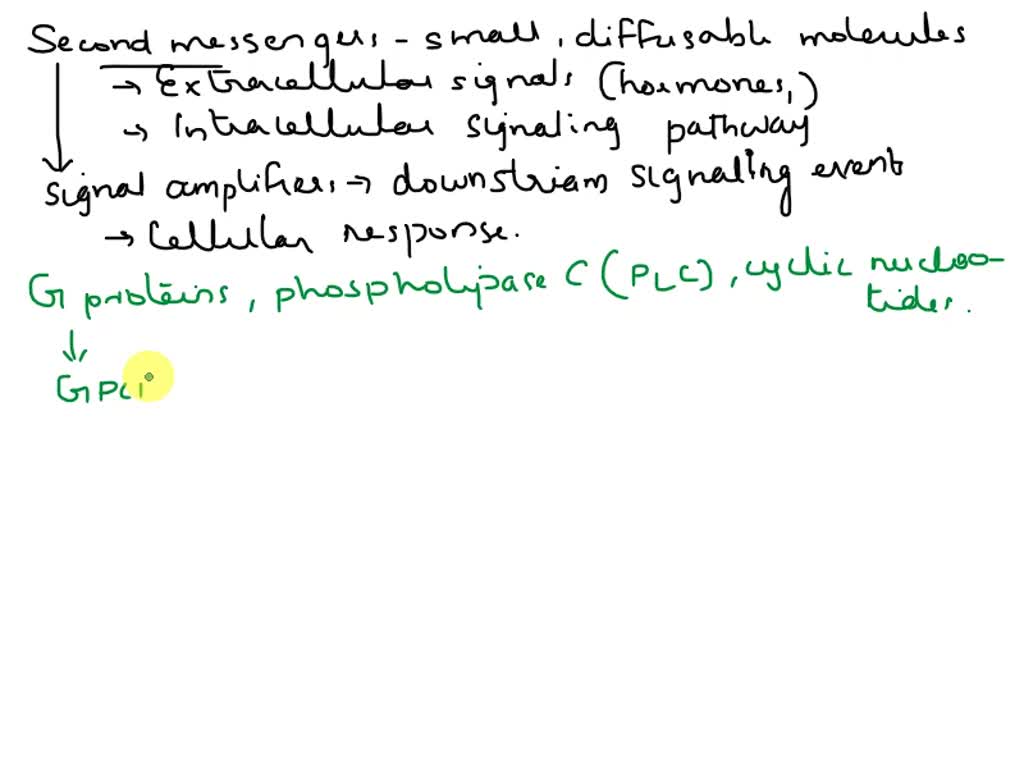 Second messengers - small, diffusable molecules
→ Extracellular signals (hormones,)
→ Intracellular signaling pathway
signal amplifiers → downstream signaling event
→ Cellular response.
G proteins, phospholipase C (PLC), cyclic nucleo-
tides.
↓
GPCR